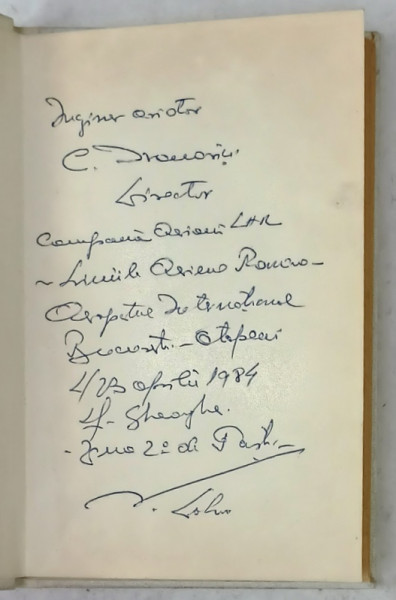 Inginer aviator
C.
Director
Compania Aviană LAR
~ Liniile Aeriene Române -
Aeroportul Internațional
București - Otopeni
4/23 aprilie 1984
Sf. Gheorghe.
- Ziua 2ª de Paști. -